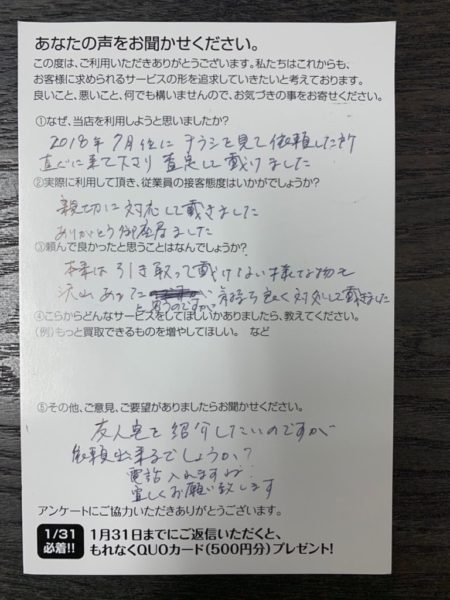 あなたの声をお聞かせください。
この度は、ご利用いただきありがとうございます。私たちはこれからも、
お客様に求められるサービスの形を追求していきたいと考えております。
良いこと、悪いこと、何でも構いませんので、お気づきの事をお寄せください。
①なぜ、当店を利用しようと思いましたか?
2018年7月位にチラシを見て依頼した所
直ぐに来て下さり査定して戴けました
②実際に利用して頂き、従業員の接客態度はいかがでしょうか?
親切に対応して戴きました
ありがとう御座居ました
③頼んで良かったと思うことはなんでしょうか?
本来は引き取って戴けない様な物も
沢山あったと思うのですが気持ち良く対処して戴きました
④こらからどんなサービスをしてほしいかありましたら、教えてください。
(例)もっと買取できるものを増やしてほしい。 など
⑤その他、ご意見、ご要望がありましたらお聞かせください。
友人宅を紹介したいのですが
依頼出来るでしょうか?
電話入れますね
宜しくお願い致します
アンケートにご協力いただきありがとうございます。
1/31 必着!! 1月31日までにご返信いただくと、
もれなくQUOカード(500円分)プレゼント!